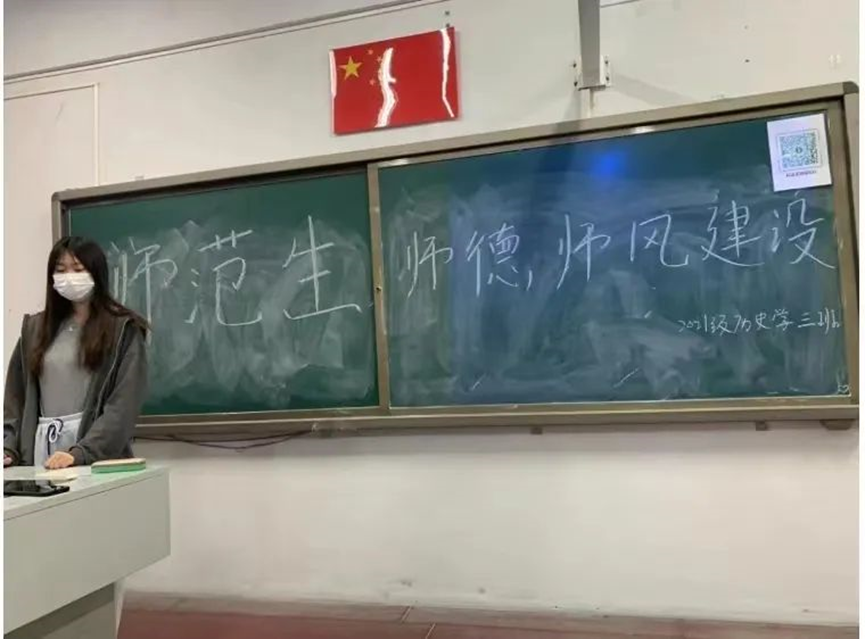 师范生师德,师风建设
2021级历史学三班